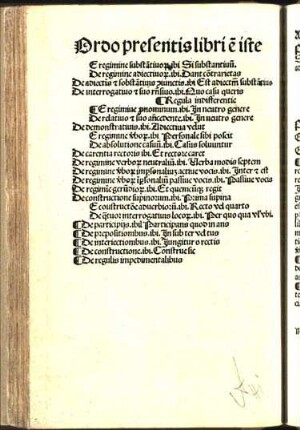 Ordo presentis libri ē iste
E regimine substātiuoꝝ.ibi. Si substantiuū.
De regimine adiectiuoꝝ.ibi. Dant cōtrarietas
De adiectis ⁊ sobstātiuis iunctis.ibi. Est adiectiū substātiuis
De interrogatiuo ⁊ suo rñsiuo.ibi. Quo casu queris
¶ Regula indifferentie
¶ E regimine pnominum.ibi. In neutro genere
De relatiuo ⁊ suo añcedente.ibi. In neutro genere
De demonstratiuis.ibi. Adiectiua velut
E regimine vboꝝ.ibi. Personale sibi poscit
De absolutione casuū.ibi. Casus soluuntur
De carentia rectoris ibi. Et rectore caret
De regimine verboꝝ neutraliū.ibi. Uerba modis septen
De regimine vboꝝ impsonaliū actiue vocis.ibi. Inter ⁊ est
De regimine vboꝝ ipsonaliū passiue vocis.ibi. Passiue vocis
De regimīe gerūdioꝝ.ibi. Et quencūqꝫ regit
De constructione supinorum.ibi. Prima supina
E cōstructōe aduerbioꝝ.ibi. Recto vel quarto
De qttuor interrogatiuis locoꝝ.ibi. Per quo qua vl vbi
¶ De participijs.ibi. Participans quod in ans
¶ De prepositionibus.ibi. In sub ter vel tus
¶ De interiectionibus.ibi. Iungitur o rectis
¶ De constructione.ibi. Construe sic
¶ De regulis impedimentalibus